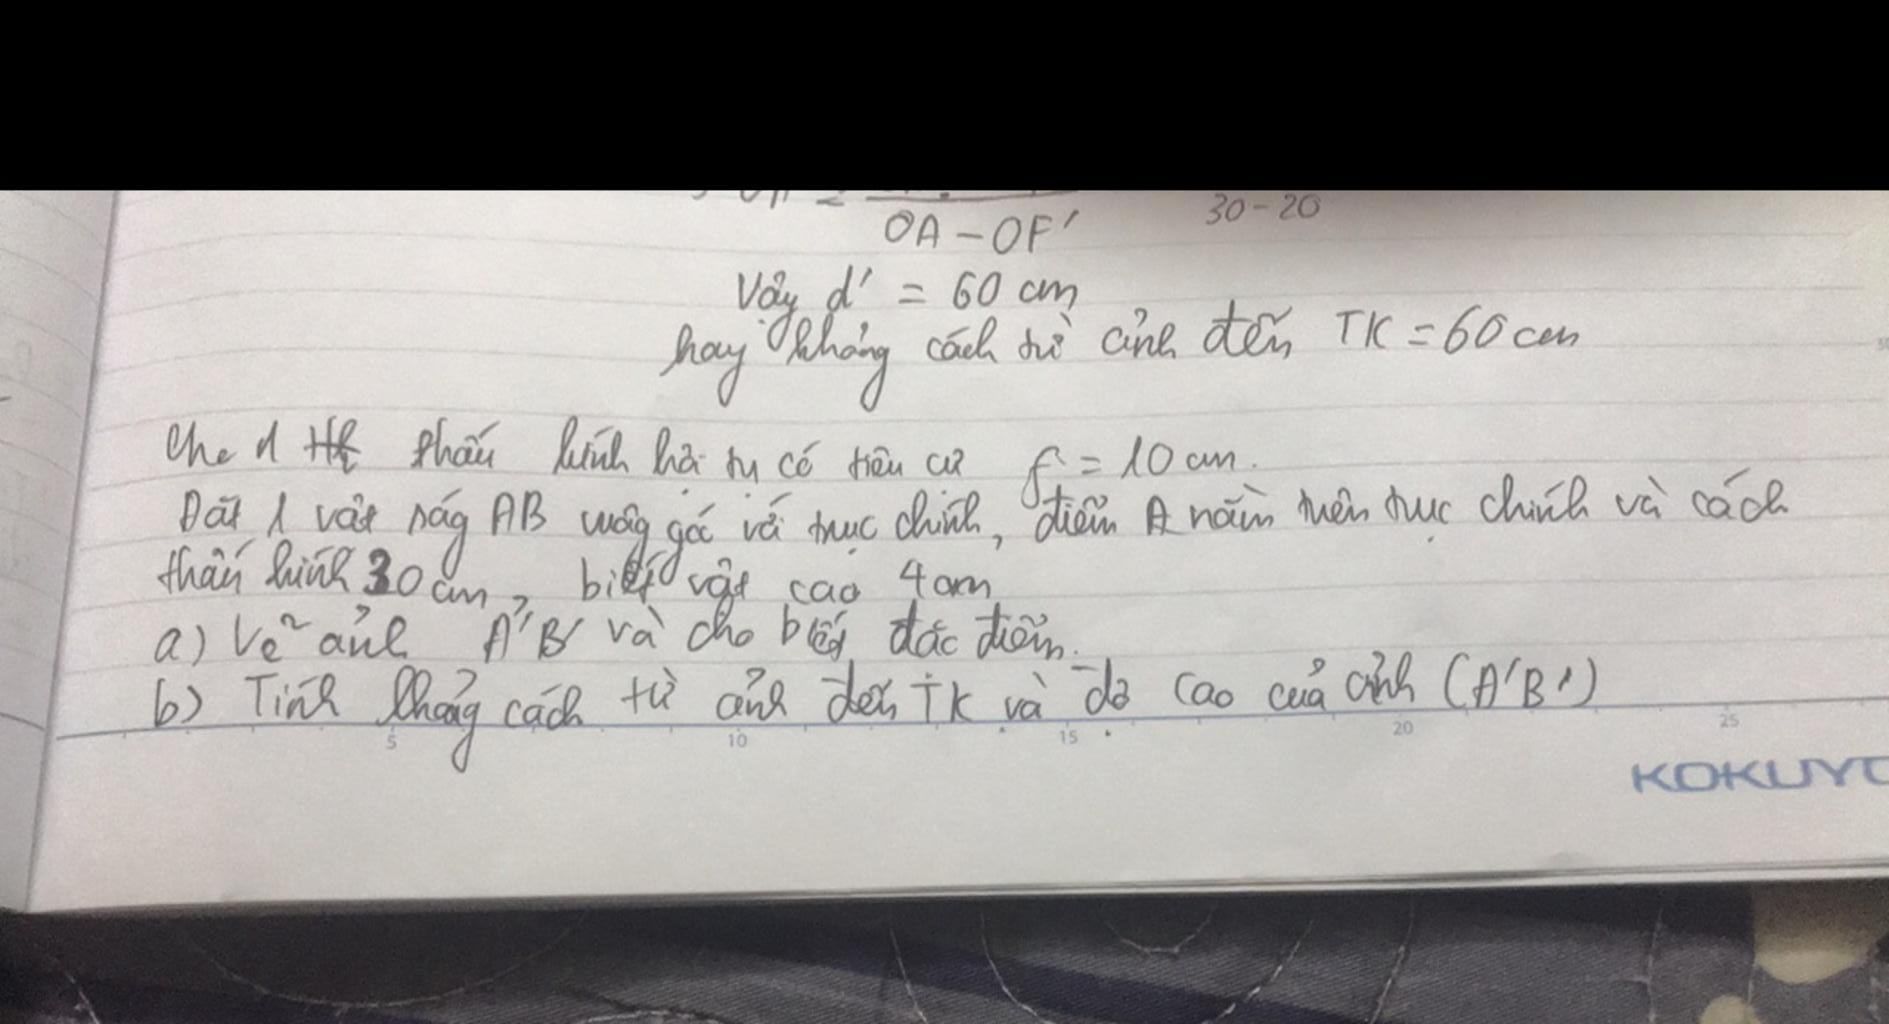 OA - OF'
30-20
Vậy d' = 60 cm
hay khoảng cách từ ảnh đến TK = 60 cm
Cho 1 thấu kính hội tụ có tiêu cự f = 10 cm.
Đặt 1 vật ság AB vuôg góc với trục chính, điểm A nằm trên trục chính và cách
thấu kính 30 cm, biết vật cao 4 cm
a) Vẽ ảnh A'B' và cho biết đặc điểm.
b) Tính khoảg cách từ ảnh đến TK và độ cao của ảnh (A'B')
5 10 15 20 25
KOKUYO